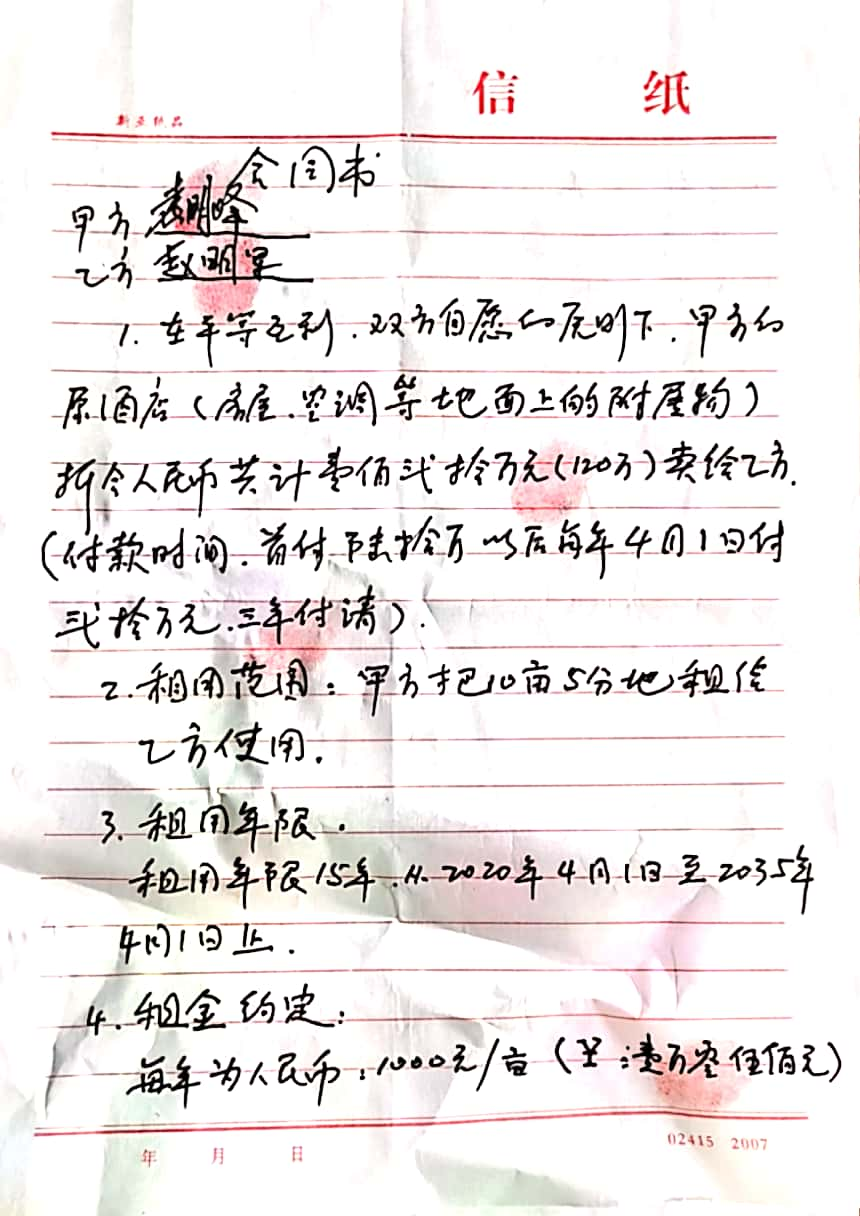 信 纸
新亚纸品
合同书
甲方 袁明峰
乙方 赵明军
1. 在平等互利.双方自愿的原则下.甲方的
原酒店(房屋.空调等地面上的附属物)
折合人民币共计壹佰贰拾万元(120万)卖给乙方.
(付款时间.首付陆拾万以后每年4月1日付
贰拾万元.三年付清).
2.租用范围:甲方把10亩5分地租给
乙方使用.
3.租用年限.
租用年限15年.从2020年4月1日至2035年
4月1日止.
4.租金约定:
每年为人民币:1000元/亩(:壹万零伍佰元)
年 月 日
02415 2007